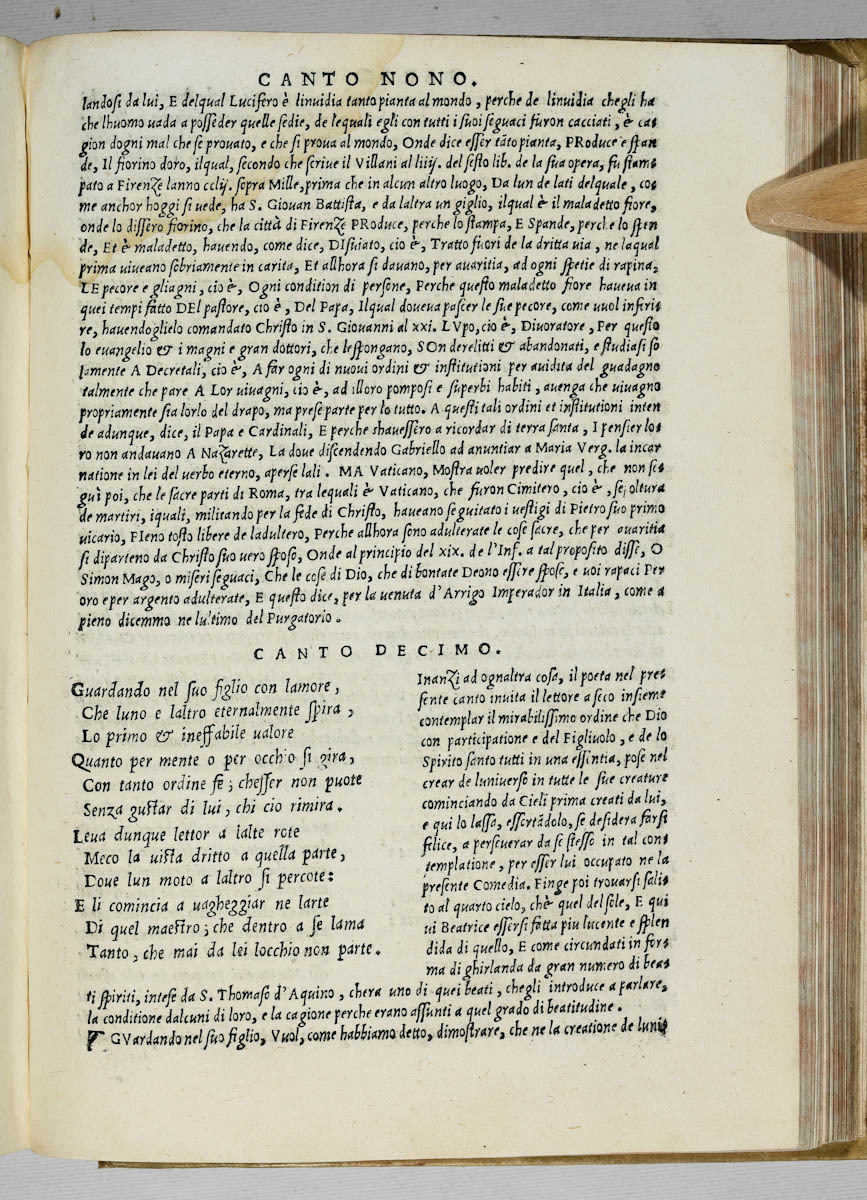 CANTO NONO.
landosi da lui, E delqual Lucifero è linuidia tanto pianta al mondo, perche de linuidia chegli ha
che lhuomo uada a posseder quelle sedie, de lequali egli con tutti i suoi seguaci furon cacciati, è ca=
gion dogni mal che se prouato, e che si proua al mondo, Onde dice esser tãto pianta, PRoduce e span
de, Il fiorino doro, ilqual, secondo che scriue il Villani al liiij. del sesto lib. de la sua opera, fu stam=
pato a Firenze lanno cclij. sopra Mille, prima che in alcun altro luogo, Da lun de lati delquale, co=
me anchor hoggi si uede, ha S. Giouan Battista, e da laltra un giglio, ilqual è il maladetto fiore,
onde lo dissero fiorino, che la città di Firenze PRoduce, perche lo stampa, E Spande, perche lo spen
de, Et è maladetto, hauendo, come dice, DIsuiato, cio è, Tratto fuori de la dritta uia, ne laqual
prima uiueano sobriamente in carita, Et allhora si dauano, per auaritia, ad ogni spetie di rapina,
LE pecore e gliagni, cio è, Ogni condition di persone, Perche questo maladetto fiore haueua in
quei tempi fatto DEl pastore, cio è, Del Papa, Ilqual doueua pascer le sue pecore, come uuol inferi=
re, hauendoglielo comandato Christo in S. Giouanni al xxi. LVpo, cio è, Diuoratore, Per questo
lo euangelio & i magni e gran dottori, che lespongano, SOn derelitti & abandonati, e studiasi so
lamente A Decretali, cio è, A far ogni di nuoui ordini & institutioni per auidita del guadagno
talmente che pare A Lor uiuagni, cio è, ad illoro pomposi e superbi habiti, auenga che uiuagno
propriamente sia lorlo del drapo, ma prese parte per lo tutto. A questi tali ordini et institutioni inten
de adunque, dice, il Papa e Cardinali, E perche shauessero a ricordar di terra santa, I pensier lo=
ro non andauano A Nazarette, La doue discendendo Gabriello ad anuntiar a Maria Verg. la incar
natione in lei del uerbo eterno, aperse lali. MA Vaticano, Mostra uoler predire quel, che non se=
guì poi, che le sacre parti di Roma, tra lequali è Vaticano, che furon Cimitero, cio è, sepoltura
de martiri, iquali, militando per la fede di Christo, haueano seguitato i uestigi di Pietro suo primo
uicario, FIeno tosto libere de ladultero, Perche allhora sono adulterate le cose sacre, che per auaritia
si diparteno da Christo suo uero sposo, Onde al principio del xix. de l'Inf. a tal proposito disse, O
Simon Mago, o miseri seguaci, Che le cose di Dio, che di bontate Deono essere spose, e uoi rapaci Per
oro e per argento adulterate, E questo dice, per la uenuta d'Arrigo Imperador in Italia, come a
pieno dicemmo ne lultimo del Purgatorio.
CANTO DECIMO.
Guardando nel suo figlio con lamore,
Che luno e laltro eternalmente spira,
Lo primo & ineffabile ualore
Quanto per mente o per occhio si gira,
Con tanto ordine fe; chesser non puote
Senza gustar di lui, chi cio rimira.
Leua dunque lettor a lalte rote
Meco la uista dritto a quella parte,
Doue lun moto a laltro si percote:
E li comincia a uagheggiar ne larte
Di quel maestro; che dentro a se lama
Tanto, che mai da lei locchio non parte.
Inanzi ad ognaltra cosa, il poeta nel pre=
sente canto inuita il lettore a seco insieme
contemplar il mirabilissimo ordine che Dio
con participatione e del Figliuolo, e de lo
Spirito santo tutti in una essentia, pose nel
crear de luniuerso in tutte le sue creature
cominciando da Cieli prima creati da lui,
e qui lo lassa, essortãdolo, se desidera farsi
felice, a perseuerar da se stesso in tal con=
templatione, per esser lui occupato ne la
presente Comedia. Finge poi trouarsi sali=
to al quarto cielo, ch è quel del sole, E qui
ui Beatrice essersi fatta piu lucente e splen
dida di quello, E come circundati in for=
ma di ghirlanda da gran numero di bea=
ti spiriti, intese da S. Thomaso d'Aquino, chera uno di quei beati, chegli introduce a parlare,
la conditione dalcuni di loro, e la cagione perche erano assunti a quel grado di beatitudine.
GVardando nel suo figlio, Vuol, come habbiamo detto, dimostrare, che ne la creatione de luni=